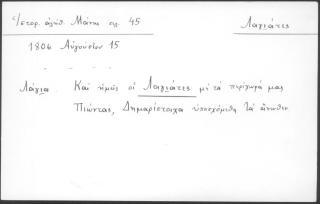 Ἱστορ. ἀλήθ. Μάνης σελ. 45
Λαγιάτες
1806 Αὐγούστου 15
Λάγια. Καὶ ἡμεῖς οἱ Λαγιάτες μὲ τὰ περίχωρά μας
Πιώντας, Δημαρίστοιχα ὑποσχόμεθα τὰ ἄνωθεν